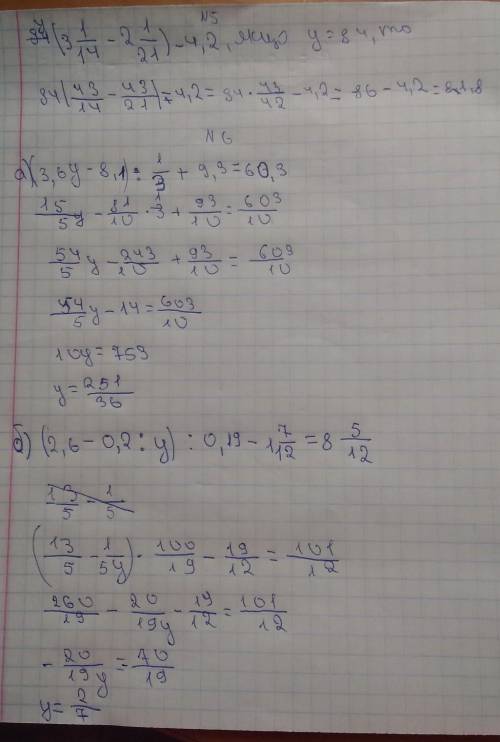 N5
y(3 1/14 - 2 1/21) - 4,2, якщо y = 84, то
84(43/14 - 43/21) - 4,2 = 84 · 43/42 - 4,2 = 86 - 4,2 = 81,8
N6
а) (3,6y - 8,1) : 1/3 + 9,3 = 60,3
15/5y - 81/10 · 3 + 93/10 = 603/10
54/5 y - 243/10 + 93/10 = 603/10
54/5 y - 14 = 603/10
10y = 753
y = 251/36
б) (2,6 - 0,2 : y) : 0,19 - 1 7/12 = 8 5/12
13/5 - 1/5
(13/5 - 1/5y) · 100/19 - 19/12 = 101/12
260/19 - 20/19y - 19/12 = 101/12
- 20/19y = 70/19
y = 2/7